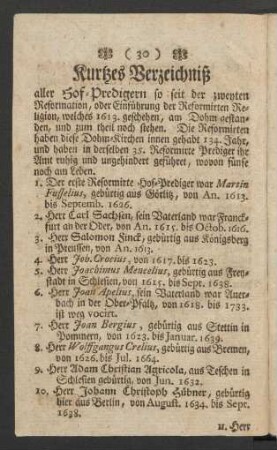 ( 30 )
Kurtzes Verzeichniß
aller Hof-Predigern so seit der zweyten
Reformation, oder Einführung der Reformirten Re-
ligion, welches 1613. geschehen, am Dohm gestan-
den, und zum theil noch stehen. Die Reformirten
haben diese Dohm-Kirchen innen gehabt 134. Jahr,
und haben in derselben 32. Reformirte Prediger ihr
Amt ruhig und ungehindert geführet, wovon fünfe
noch am Leben.
1. Der erste Reformitte Hof-Prediger war Martin
Fusselius, gebürtig aus Görlitz, von An. 1613.
bis Septemb. 1626.
2. Herr Carl Sachsen, sein Vaterland war Franck-
furt an der Oder, von An. 1615. bis Octob. 1616.
3. Herr Salomon Finck, gebürtig aus Königsberg
in Preussen, von An. 1613.
4. Herr Joh. Crocius, von 1617. bis 1623.
5. Herr Joachimus Mencelius, gebürtig aus Frey-
stadt in Schlesien, von 1615. bis Sept. 1638.
6. Herr Joan Apelius, sein Vaterland war Auer-
bach in der Ober-Pfaltz, von 1618. bis 1733.
ist weg vocirt.
7. Herr Joan Bergius, gebürtig aus Stettin in
Pommern, von 1623. bis Januar. 1639.
8. Herr Wolffgangus Crelius, gebürtig aus Bremen,
von 1626. bis Jul. 1664.
9. Herr Adam Christian Agricola, aus Teschen in
Schlesien gebürtig, von Jun. 1632.
10. Herr Johann Christoph Hübner, gebürtig
hier aus Berlin, von August. 1634. bis Sept.
1638.
11. Herr